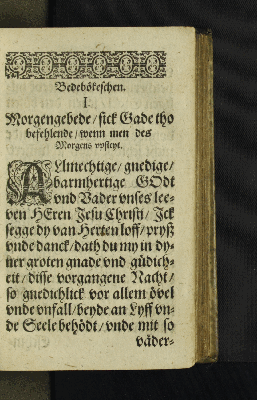 Bedebökeschen.
I.
Morgengebede / sick Gade tho
befehlende / wenn men des
Morgens vpsteyt.
ALlmechtige / gnedige /
barmhertige GOdt
vnd Vader vnses lee-
ven HEren Jesu Christi / Jck
segge dy van Herten loff / pryß
vnde danck / dath du my in dy-
ner groten gnade vnd güdich-
eit / disse vorgangene Nacht /
so gnedichlick vor allem övel
vnde vnfall / beyde an Lyff vn-
de Seele behödt / vnde mit so
väder-